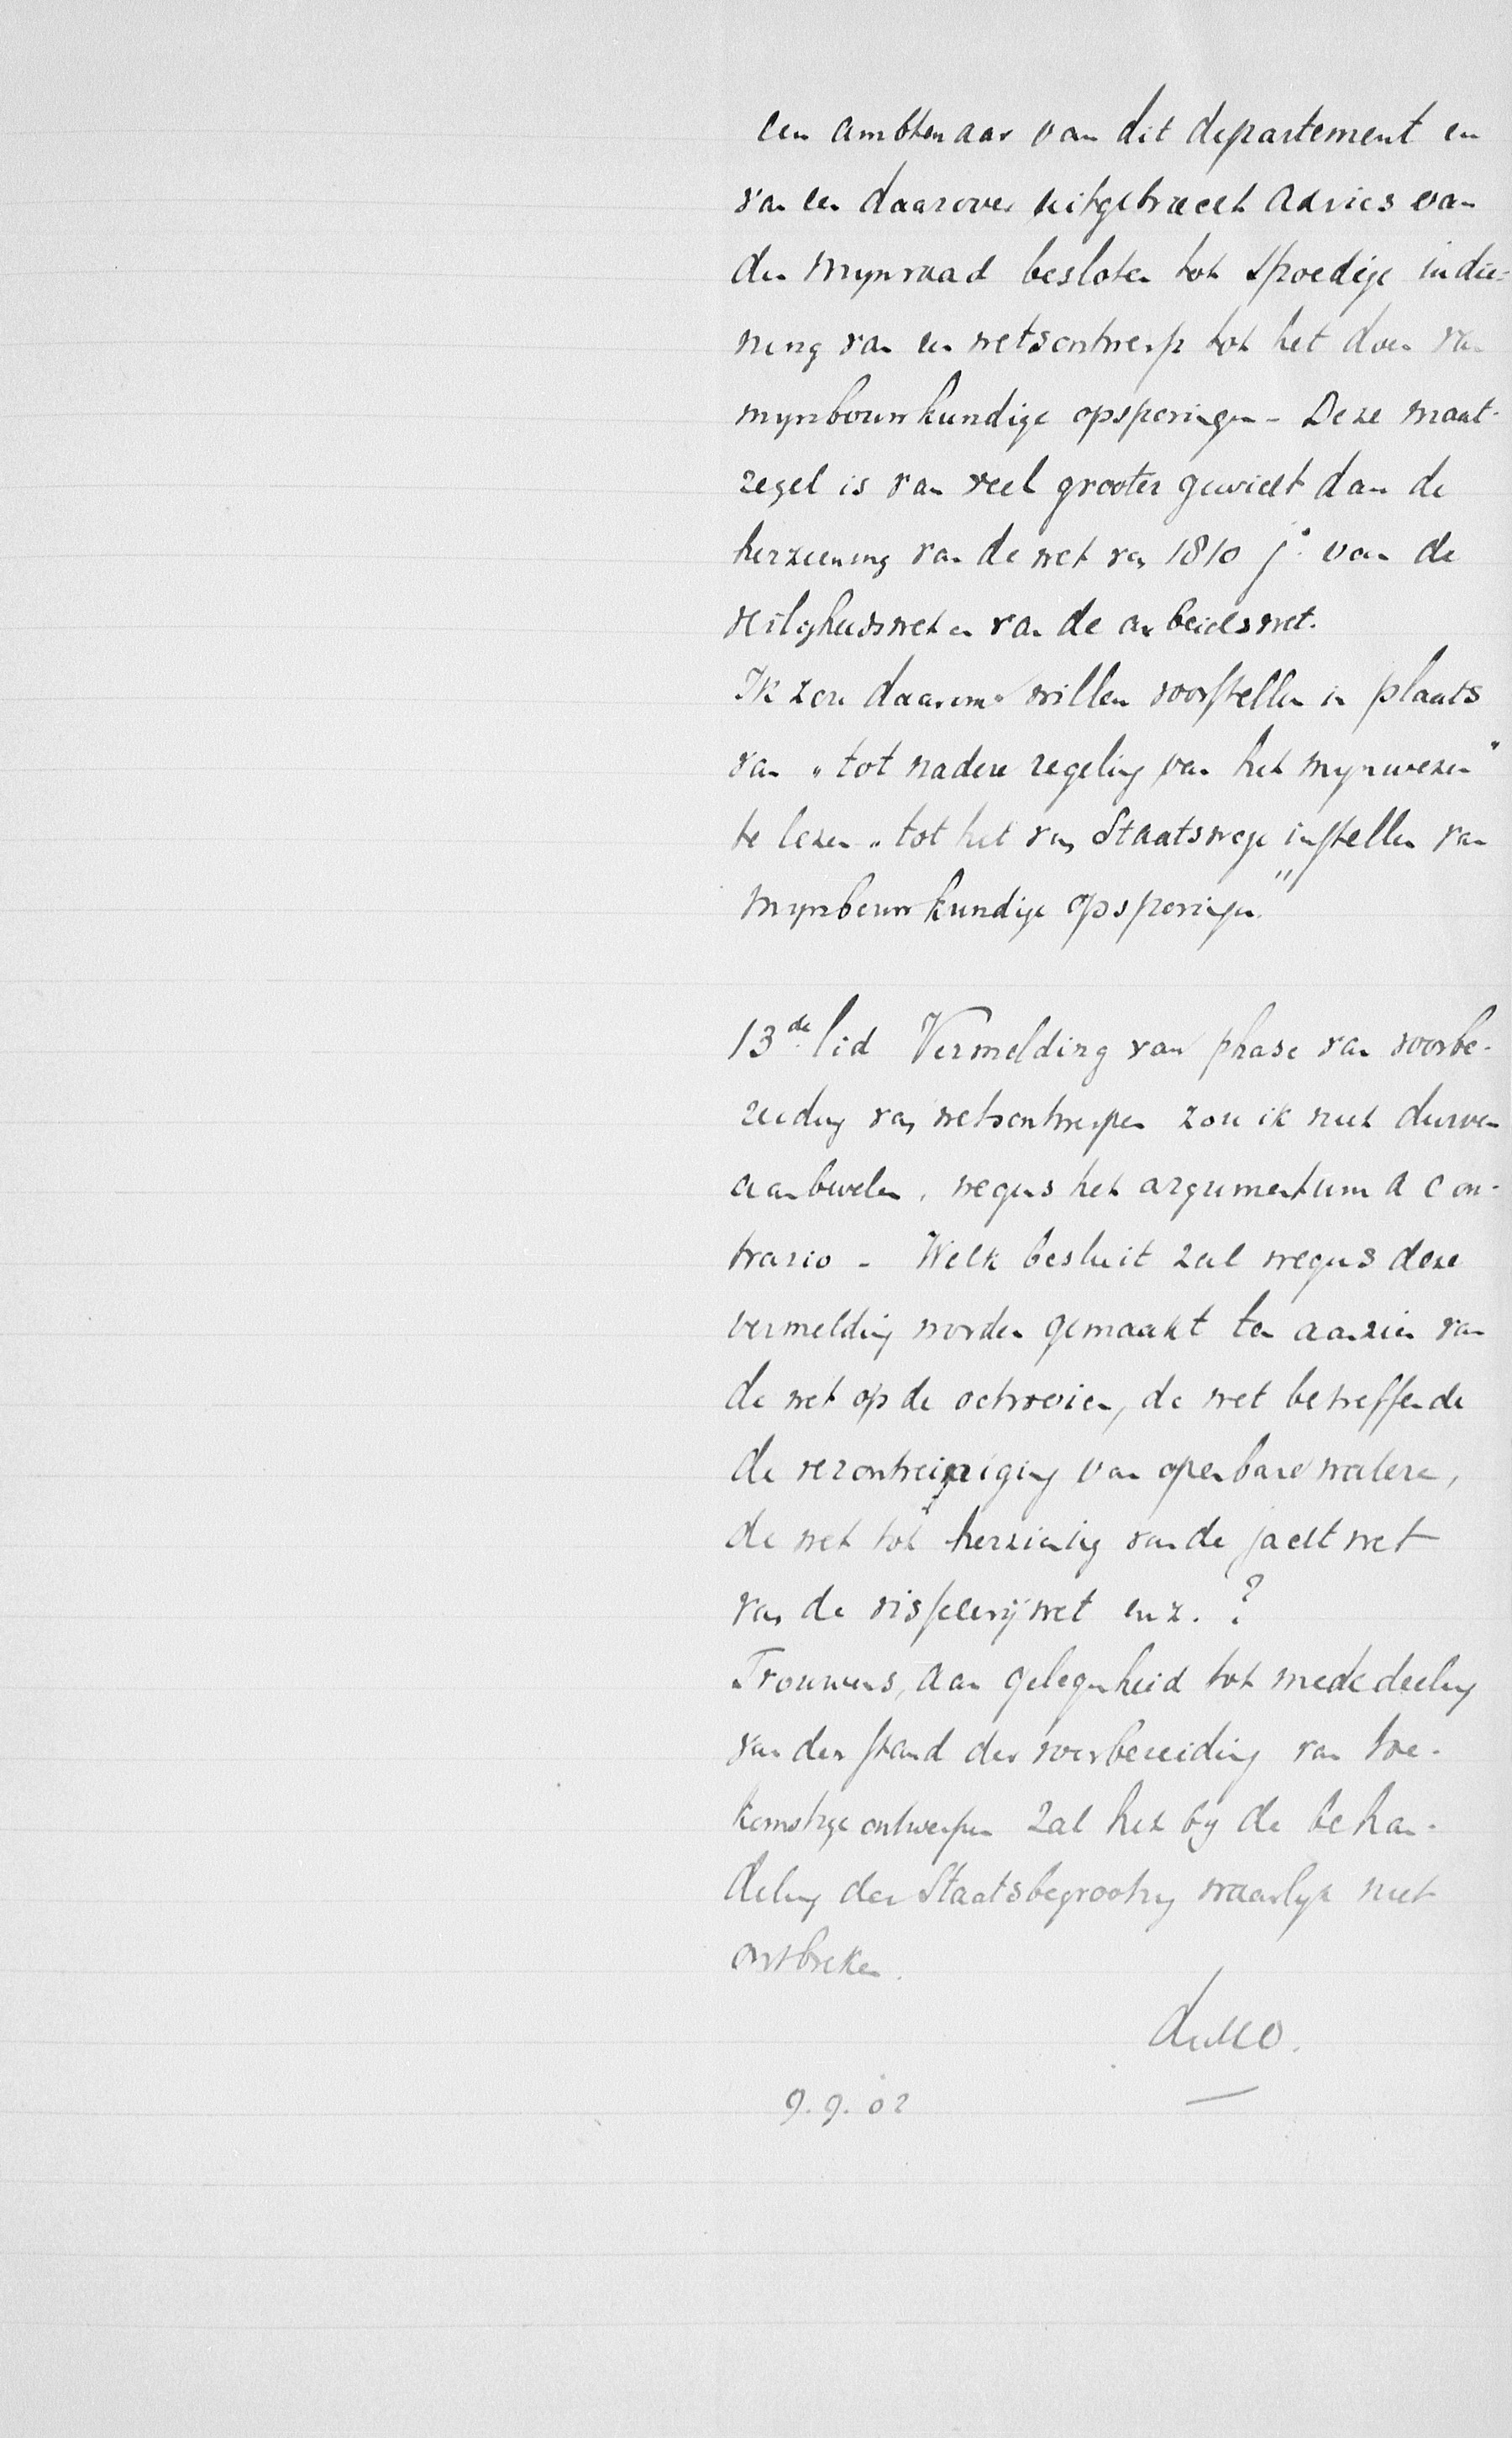 een ambtenaar van dit departement en
van een daarover uitgebracht advies van
den mynraad besloten tot spoedige indie-
ning van een wetsontwerp tot het doen van
mynbouwkundige opsporingen - Deze maat-
regel is van veel grooter gewicht dan de
herziening van de wet van 1810 jº. van de
veiligheidswet en van de arbeidswet.
Ik zou daarom willen voorstellen in plaats
van „tot nadere regeling van het mynwezen"
te lezen „tot het van Staatswege instellen van
mynbouwkundige opsporingen."
13de lid Vermelding van phase van voorbe-
reiding van wetsontwerpen zou ik niet durven
aanbevelen, wegens het argumentum a con-
trario - Welk besluit zal wegens deze
vermelding worden gemaakt ten aanzien van
de wet op de octrooien, de wet betreffende
de verontreiniging van openbare wateren,
de wet tot herziening van de jachtwet
van de visscherijwet enz. ?
Trouwens, aan gelegenheid tot mededeeling
van den stand der voorbereiding van toe-
komstige ontwerpen zal het by de behan-
deling der Staatsbegrooting waarlyk niet
ontbreken.
9.9.02